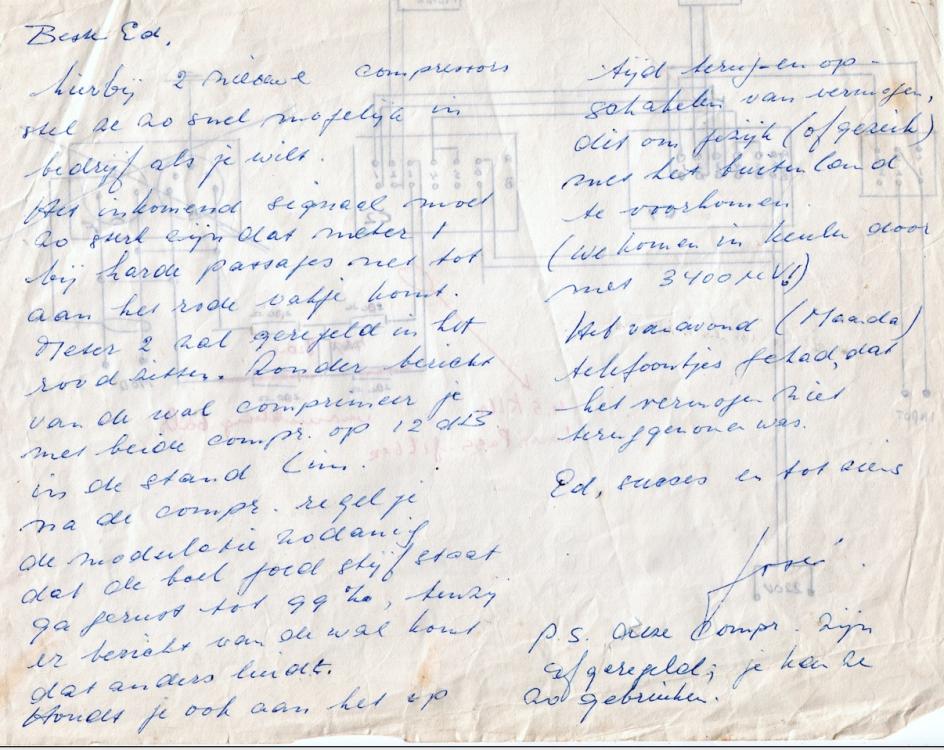 Beste Ed,
hierbij 2 nieuwe compressors
stel ze zo snel mogelijk in
bedrijf als je wilt.
Het inkomend signaal moet
zo sterk zijn dat meter 1
bij harde passages net tot
aan het rode vakje komt.
Meter 2 zal geregeld in het
rood zitten. Zonder bericht
van de wal comprimeer je
met beide compr. op 12 dB
in de stand lim.
na de compr. regel je
de modulatie zodanig
dat de boel goed stijf staat
ga gerust tot 99 %, tenzij
er bericht van de wal komt
dat anders luidt.
Houdt je ook aan het op
tijd terug- en op-
schakelen van vermogen,
dit om (of gezeik)
met het buitenland
te voorkomen.
(We komen in Keulen door
met 3400 µV!)
Heb vanavond (Maanda)
telefoontjes gehad, dat
het vermogen niet
teruggenomen was.
Ed, succes en tot ziens
José
P.S. deze compr. zijn
afgeregeld; je kan ze
zo gebruiken.
220V
INPUT